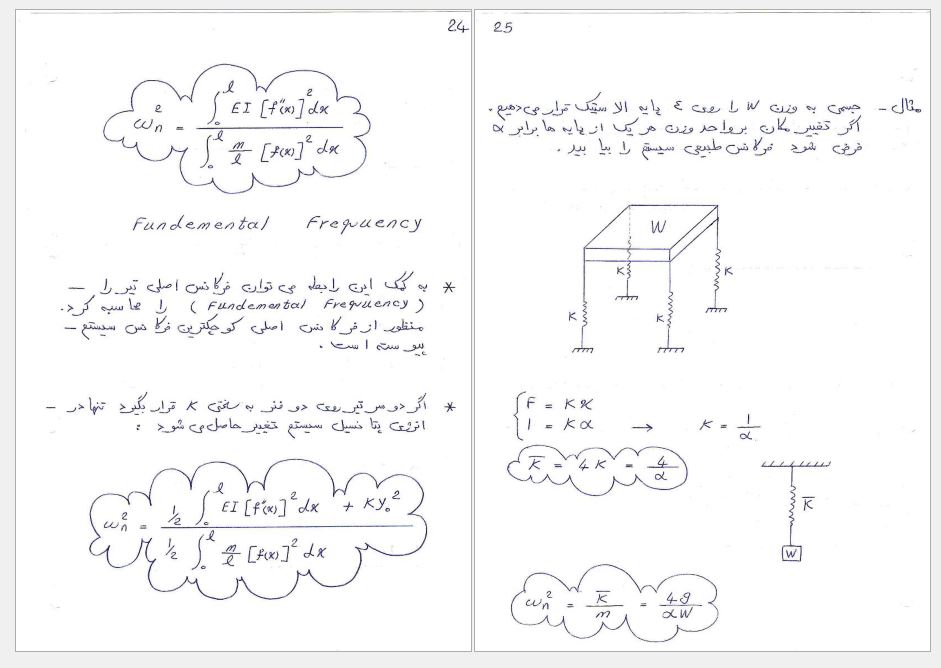 24
ω²n = ∫₀^l EI [f″(x)]² dx / ∫₀^l m/l [f(x)]² dx
Fundemental Frequuency
* به کمک این رابطه می توان فرکانس اصلی تیر را
( Fundemental Frequuency ) را محاسبه کرد.
منظور از فرکانس اصلی کوچکترین فرکانس سیستم
پیوسته است.
* اگر دو سر تیر روی دو فنر به سختی K قرار بگیرد تنها در
انرژی پتانسیل سیستم تغییر حاصل می شود :
ω²n = ½ ∫₀^l EI [f″(x)]² dx + Ky₀² / ½ ∫₀^l m/l [f(x)]² dx
25
مثال - جسمی به وزن W را روی ٤ پایه الاستیک قرار می دهیم.
اگر تغییر مکان بر واحد وزن هر یک از پایه ها برابر α
فرض شود فرکانس طبیعی سیستم را بیابید.
W
K
K
K
K
F = Kx
1 = Kα → K = 1/α
K̅ = 4K = 4/α
K̅
W
ω²n = K̅/m = 4g/αW